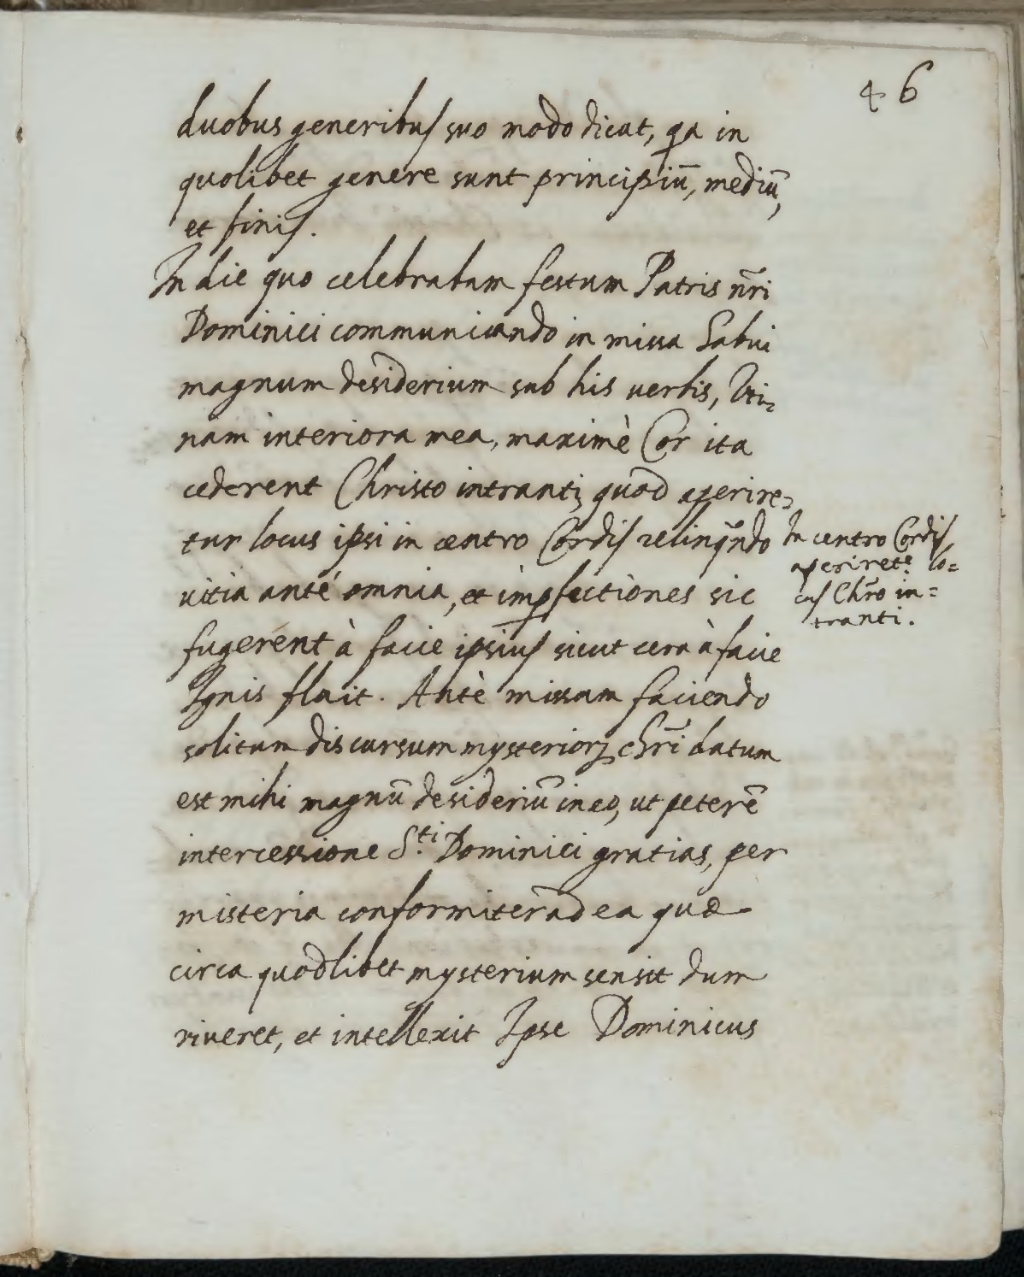 46
duobus generibus suo modo dicat, qa in
quolibet genere sunt principiū, mediū,
et finis.
In die quo celebrabam festum Patris nr̄i
Dominici communicando in missa habui
magnum desiderium sub his verbis, Uti=
nam interiora mea, maximè Cor ita
cederent Christo intranti, quod aperire=
tur locus ipsi in centro Cordis relinqn̄do
vitia antè omnia, et imꝑfectiones sic
fugerent à facie ipsius sicut cera à facie
Ignis fluit. Antè missam faciendo
solitum discursum mysterioꝝ chrī datum
est mihi magnū desideriū in eo, ut peterē
intercessione S.ti Dominici gratias, per
misteria conformiter ad ea quæ
circa quodlibet mysterium sensit dum
viveret, et intellexit Ipse Dominicus
In centro Cordis
aperiret.r lo=
cus Chr̄o in=
tranti.